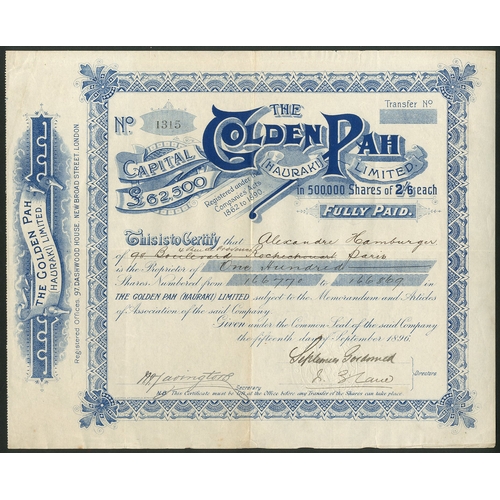 THE GOLDEN PAH
(HAURAKI) LIMITED
Registered Offices, 97, DASHWOOD HOUSE, NEW BROAD STREET, LONDON
No. 1315
Transfer No
THE
GOLDEN PAH
(HAURAKI) LIMITED.
CAPITAL
£62,500
Registered under the
Companies Acts
1862 to 1890
In 500,000 Shares of 2/6 each
FULLY PAID.
This is to Certify that Alexandre Hamburger
of 90 Boulevard Paris
is the Proprietor of One Hundred
Shares, Numbered from 166770 to 166869 in
THE GOLDEN PAH (HAURAKI) LIMITED subject to the Memorandum and Articles
of Association of the said Company
Given under the Common Seal of the said Company
the fifteenth day of September 1896.
Directors
Secretary
This Certificate must be left at the Office before any Transfer of the Shares can take place